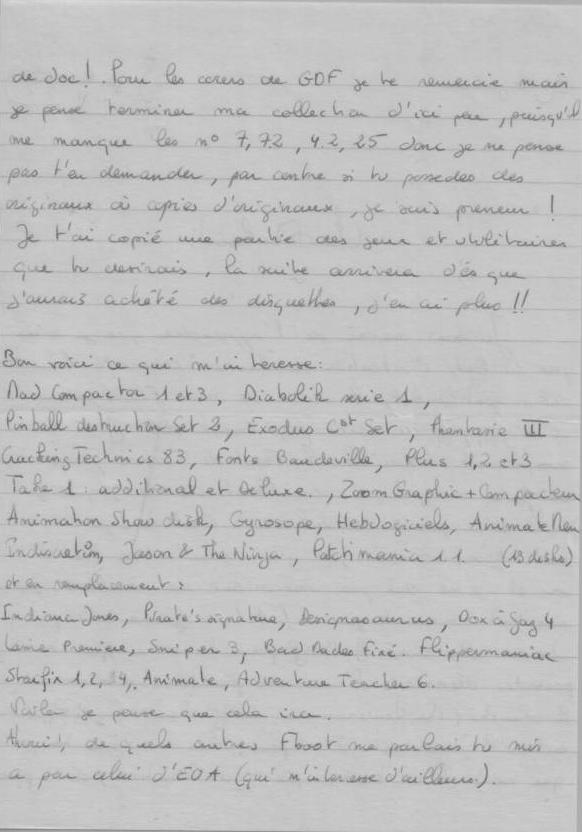 de doc! Pour les cours de GDF je te remercie mais
je pense terminer ma collection d'ici peu, puisqu'il
me manque les n° 7, 7.2, 4.2, 25 donc je ne pense
pas t'en demander, par contre si tu possedes des
originaux où copies d'originaux, je suis preneur!
Je t'ai copié une partie des jeux et utilitaires
que tu desirais, la suite arrivera dés que
j'aurais acheté des disquettes, j'en ai plus!!
Bon voici ce qui m'interesse:
Mad Compactor 1 et 3, Diabolik serie 1,
Pinball destruction Set 2, Exodus Cst Set, Phantasie III
Cracking Technics 83, Fonts Baudeville, Plus 1, 2 et 3
Take 1: additional et Deluxe., Zoom Graphic + Compacteur
Animation Show disk, Gyrosope, Hebdogiciels, Animate New
Indiscretion, Jason & The Ninja, Patchmania 1.1. (13 disks)
et en remplacement:
Indiana Jones, Pirate's signature, Designasaurus, Dox à Gog 4
Lamie Premiere, Sniper 3, Bad Dudes Fixé. Flippermaniac
Starfix 1, 2, 34, Animate, Adventure Teacher 6.
Voila je pense que cela ira.
de quels autres Fboot me parlais tu mis
a par celui d'EOA (qui m'interesse d'ailleurs).